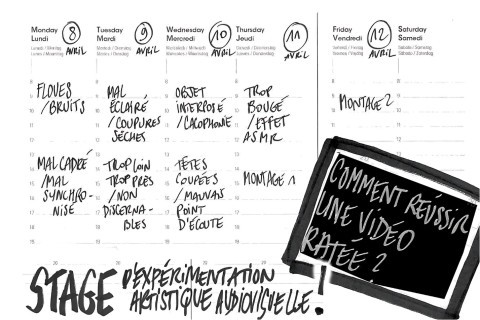 Monday
Lundi
8
AVRIL
Tuesday
Mardi
9
AVRIL
Wednesday
Mercredi
10
AVRIL
Thursday
Jeudi
11
AVRIL
Friday
Vendredi
12
AVRIL
Saturday
Samedi
FLOUES
/BRUITS
MAL
ÉCLAIRÉ
/COUPURES
SÈCHES
OBJET
INTERPOSÉ
/CACOPHONIE
TROP
BOUGÉ
/EFFET
ASMR
MONTAGE 2
MAL CADRÉ
/MAL
SYNCHRO-
NISÉ
TROP LOIN
TROP PRÈS
/NON
DISCERNA-
BLES
TÊTES
COUPÉES
/MAUVAIS
POINT
D'ÉCOUTE
MONTAGE 1
COMMENT RÉUSSIR
UNE VIDEO
RATÉE ?
STAGE D'EXPÉRIMENTATION
ARTISTIQUE AUDIOVISUELLE !